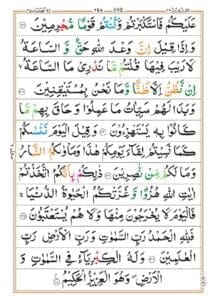 عَلَيْكُمْ فَاسْتَكْبَرْتُمْ وَكُنْتُمْ قَوْمًا مُّجْرِمِيْنَ
وَاِذَا قِيْلَ اِنَّ وَعْدَ اللّٰهِ حَقٌّ وَّ السَّاعَةُ
لَا رَيْبَ فِيْهَا قُلْتُمْ مَّا نَدْرِيْ مَا السَّاعَةُ
اِنْ نَّظُنُّ اِلَّا ظَنًّا وَّمَا نَحْنُ بِمُسْتَيْقِنِيْنَ
وَبَدَا لَهُمْ سَيِّاٰتُ مَا عَمِلُوْا وَحَاقَ بِهِمْ مَّا
كَانُوْا بِهٖ يَسْتَهْزِءُوْنَ وَقِيْلَ الْيَوْمَ نَنْسٰىكُمْ
كَمَا نَسِيْتُمْ لِقَآءَ يَوْمِكُمْ هٰذَا وَمَاْوٰىكُمُ النَّارُ
وَمَا لَكُمْ مِّنْ نّٰصِرِيْنَ ذٰلِكُمْ بِاَنَّكُمُ اتَّخَذْتُمْ
اٰيٰتِ اللّٰهِ هُزُوًا وَّغَرَّتْكُمُ الْحَيٰوةُ الدُّنْيَا
فَالْيَوْمَ لَا يُخْرَجُوْنَ مِنْهَا وَلَا هُمْ يُسْتَعْتَبُوْنَ
فَلِلّٰهِ الْحَمْدُ رَبِّ السَّمٰوٰتِ وَرَبِّ الْاَرْضِ رَبِّ
الْعٰلَمِيْنَ وَلَهُ الْكِبْرِيَآءُ فِي السَّمٰوٰتِ وَ
الْاَرْضِ وَهُوَ الْعَزِيْزُ الْحَكِيْمُ